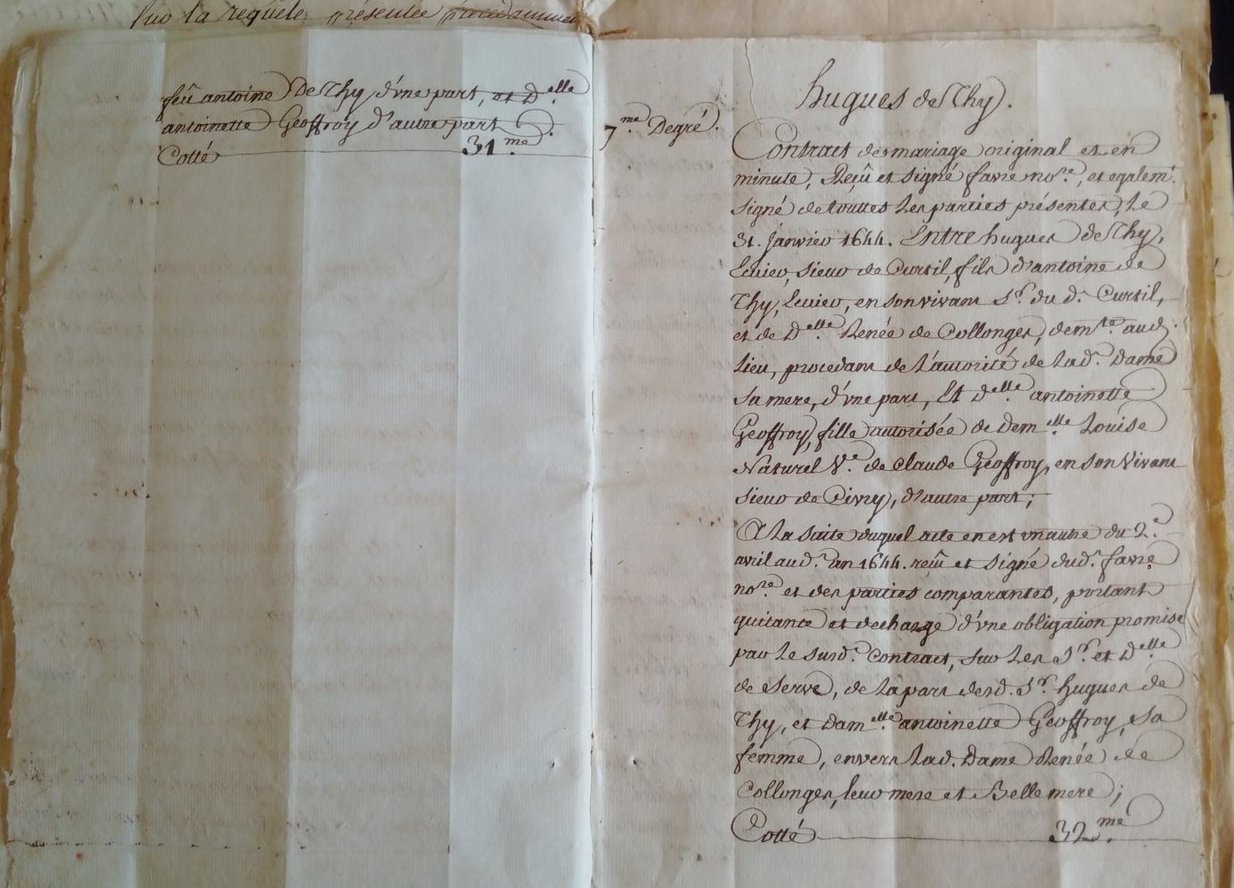 Vuo la requete présentée precedamment
feû antoine De Thy d'vne part, et D.elle
antoinette Geoffroy d'autre part
Cotté 31.me
hugues de Thy.
7.me Degré.
Contract de mariage original et en
minute, Reçû et signé favre no.re, et egalem.t
signé de touttes les parties présentes, Le
31. Janvier 1644. Entre hugues de Thy,
Ecuier, sieur de Curtil, fils d'antoine de
Thy, Ecuier, en son vivant S.r du d. Curtil,
et de D.elle Renée de Collonges, dem.te aud.
Lieu, procedant de l'autorité de lad. Dame
sa mere, d'vne part, Et d.elle antoinette
Geoffroy, fille autorisée de dem.elle Louise
Naturel V.e de Claude Geoffroy, en son vivant
sieur de Civry, d'autre part;
A la suite duquel acte en est vn autre du 2.e
avril aud. an 1644. reçû et signé dud. favre
no.re et des parties comparantes, portant
quitance et decharge d'vne obligation promise
par le susd. Contract, sur les S.r et D.elle
de Serve, de la part desd. S.r hugues de
Thy, et Dam.elle antoinette Geoffroy, sa
femme, envers lad. Dame Renée de
Collonges, leur mere et Belle mere;
Cotté 32.me